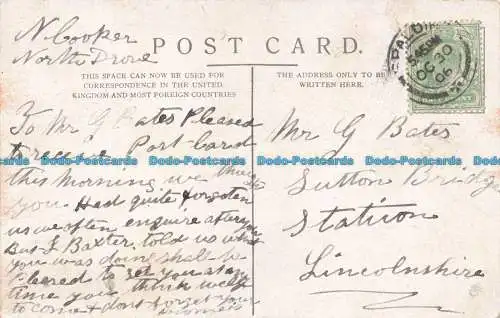 N. Cooper
North Drove
POST CARD.
THIS SPACE CAN NOW BE USED FOR
CORRESPONDENCE IN THE UNITED
KINGDOM AND MOST FOREIGN COUNTRIES
THE ADDRESS ONLY TO BE
WRITTEN HERE.
SPALDING
5.45PM
OC 30
06
To Mr G Bates Pleased
to receive Post-Card
this Morning we thought
you Had quite forgoten
us we often enquire after you
But F Baxter told us what
you was doing shall be
pleased to see you at any
time you think well
to come & dont forget your
Mr G Bates
Sutton Bridge
Station
Lincolnshire
Dodo-Postcards Dodo-Postcards Dodo-Postcards Dodo-Postcards Dodo-Postcards